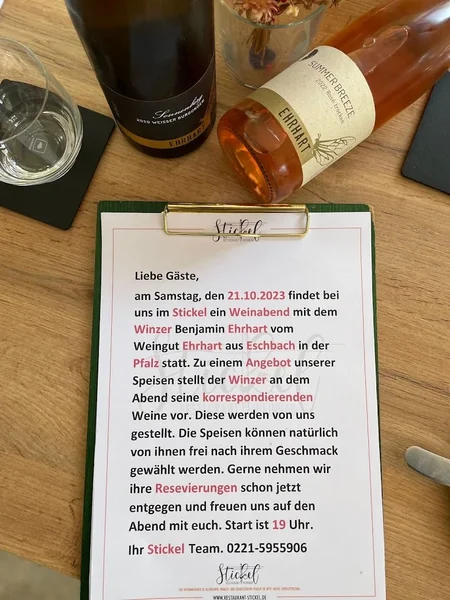 Sonnenberg
2020 WEISSER BURGUNDER
EHRHART
SUMMER BREEZE
2022 Rosé trocken
EHRHART
Stickel
Liebe Gäste,
am Samstag, den 21.10.2023 findet bei
uns im Stickel ein Weinabend mit dem
Winzer Benjamin Ehrhart vom
Weingut Ehrhart aus Eschbach in der
Pfalz statt. Zu einem Angebot unserer
Speisen stellt der Winzer an dem
Abend seine korrespondierenden
Weine vor. Diese werden von uns
gestellt. Die Speisen können natürlich
von ihnen frei nach ihrem Geschmack
gewählt werden. Gerne nehmen wir
ihre Resevierungen schon jetzt
entgegen und freuen uns auf den
Abend mit euch. Start ist 19 Uhr.
Ihr Stickel Team. 0221-5955906
Stickel
WWW.RESTAURANT-STICKEL.DE